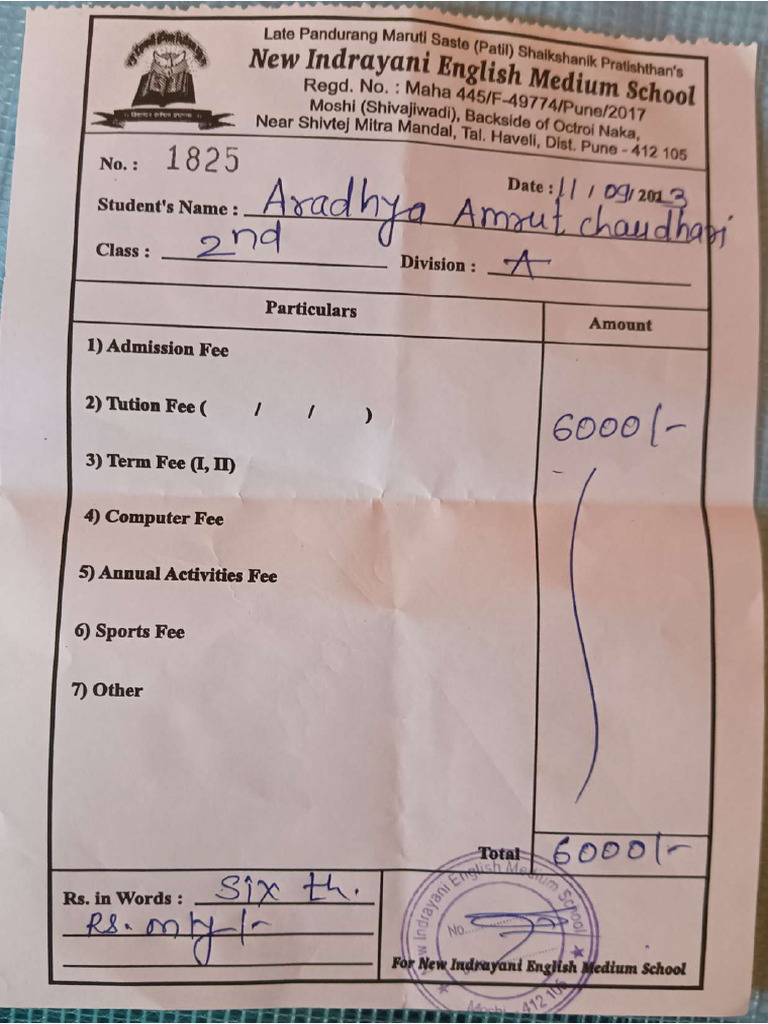 Late Pandurang Maruti Saste (Patil) Shaikshanik Pratishthan's
New Indrayani English Medium School
Regd. No. : Maha 445/F-49774/Pune/2017
Moshi (Shivajiwadi), Backside of Octroi Naka,
Near Shivtej Mitra Mandal, Tal. Haveli, Dist. Pune - 412 105
No. : 1825
Date : 11 / 09 / 2023
Student's Name : Aradhya Amrut chaudhari
Class : 2nd Division : A
Particulars Amount
1) Admission Fee
2) Tution Fee ( / / ) 6000/-
3) Term Fee (I, II) -
4) Computer Fee
5) Annual Activities Fee
6) Sports Fee
7) Other
Total 6000/-
Rs. in Words : Six th.
Rs. only/-
New Indrayani English Medium School
No.
Moshi - 412 105
For New Indrayani English Medium School